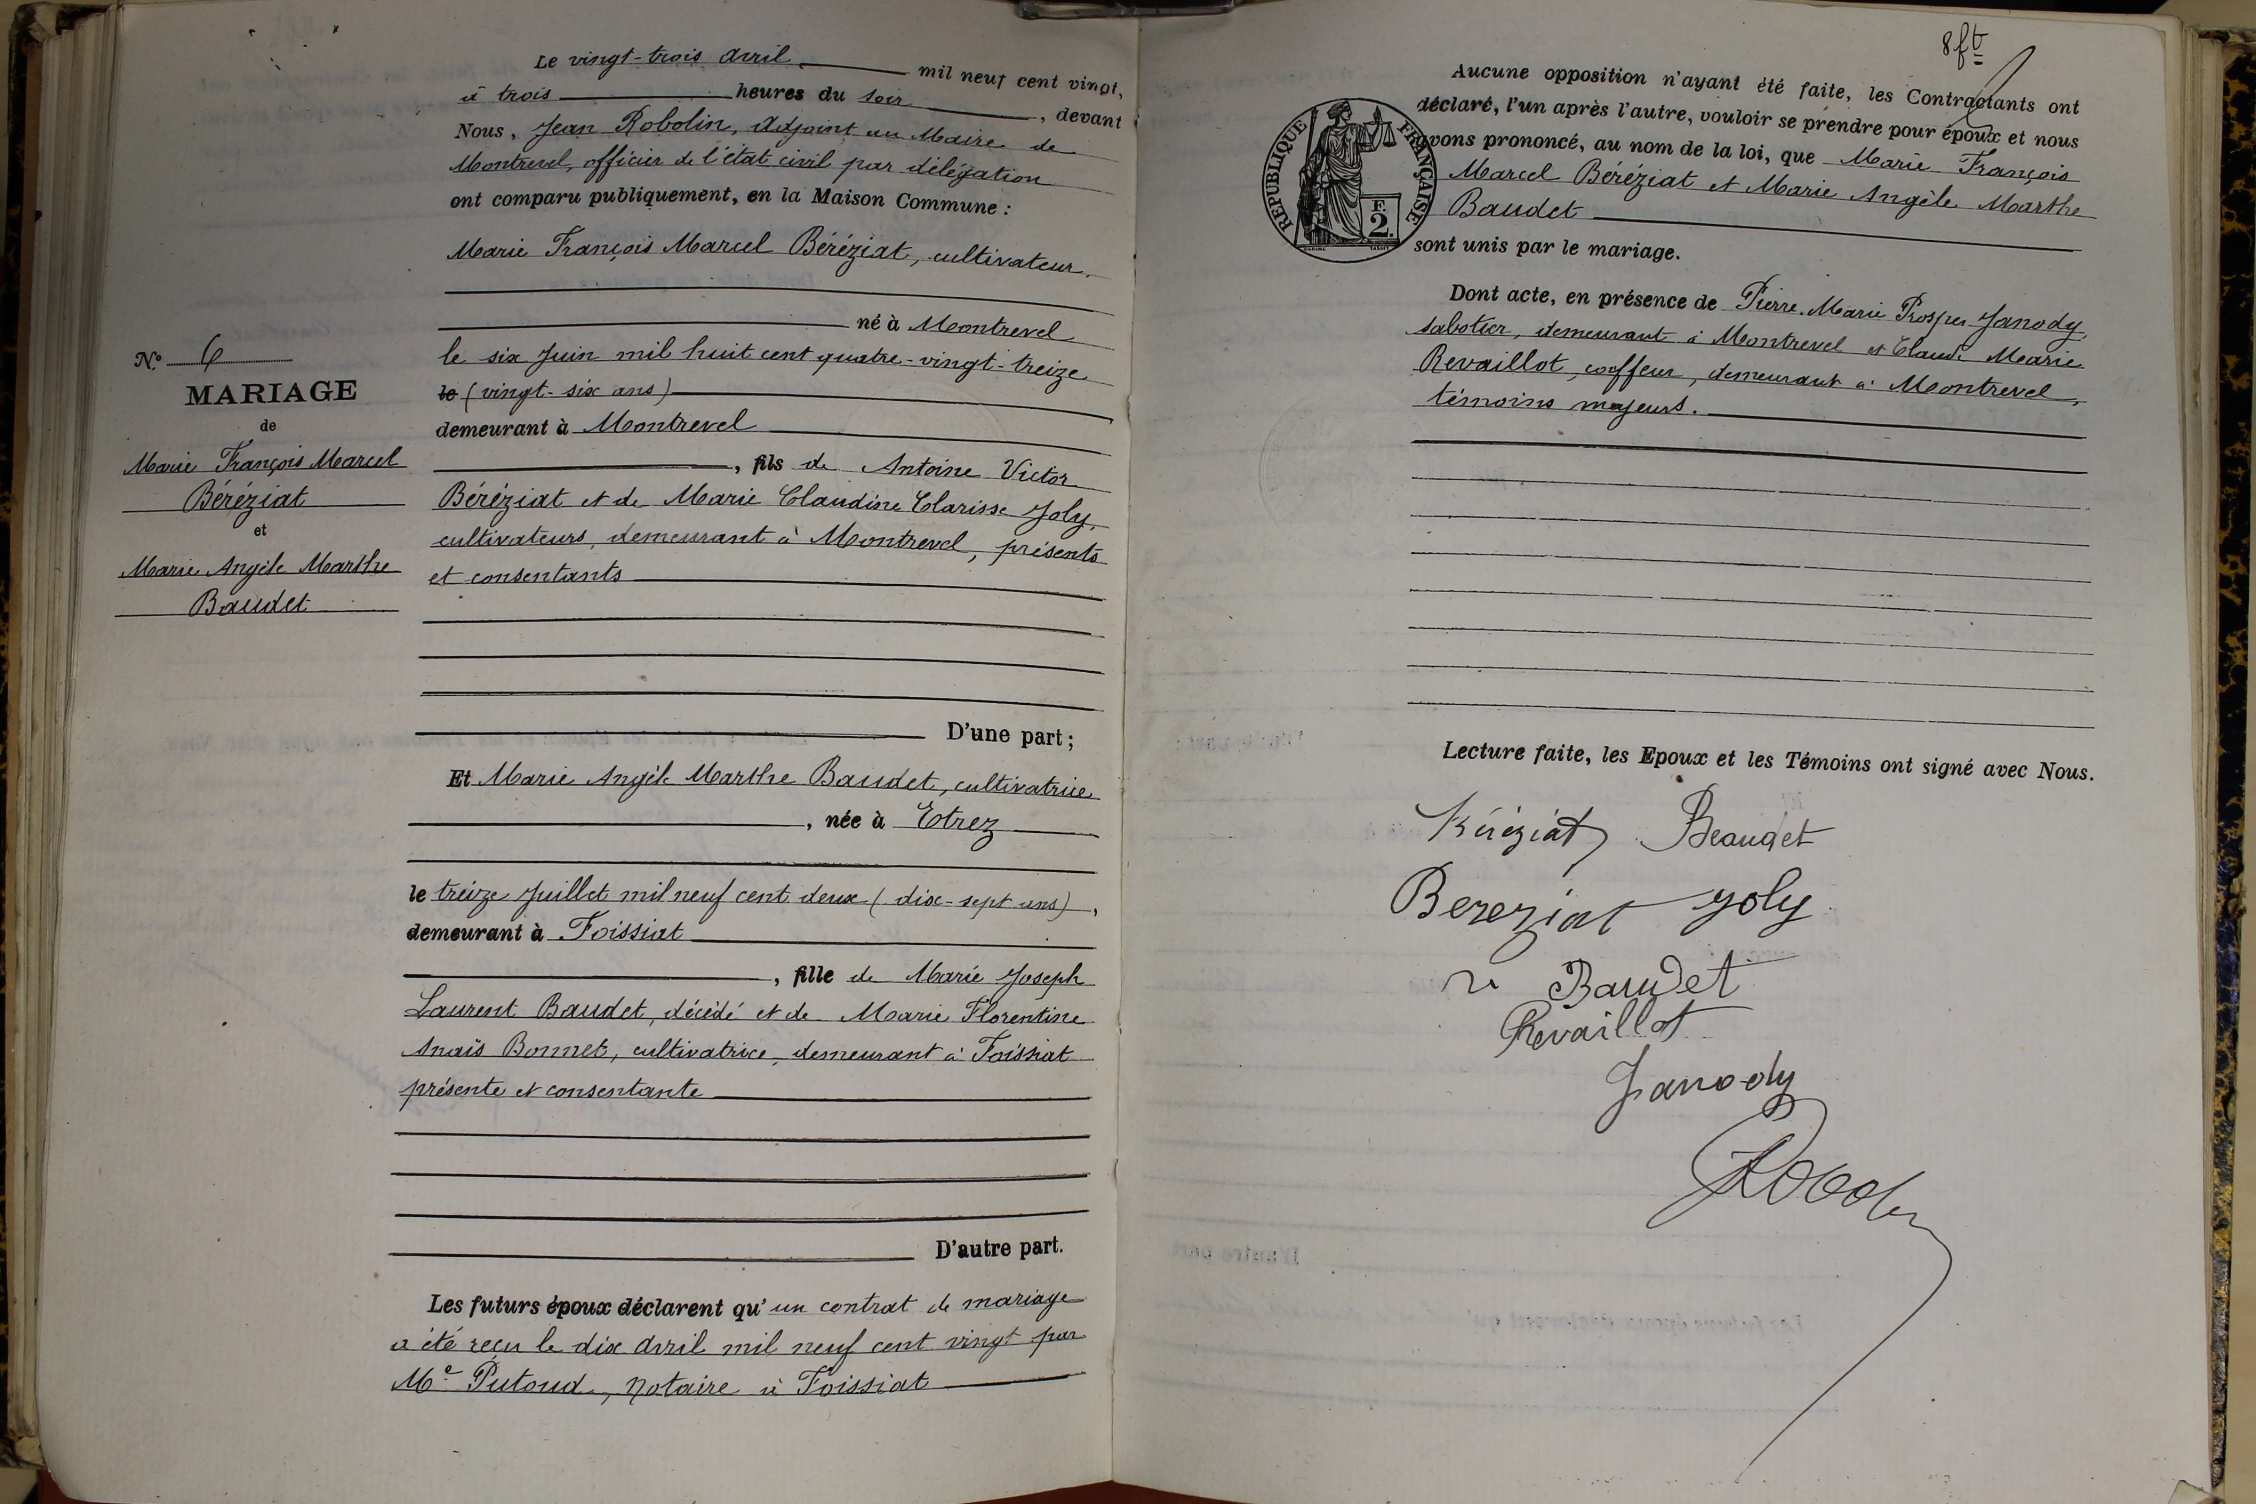 Le vingt-trois avril mil neuf cent vingt,
à trois heures du soir, devant
Nous, Jean Robolin, Adjoint au Maire de
Montrevel, officier de l'état civil par délégation
ont comparu publiquement, en la Maison Commune :
Marie François Marcel Béréziat, cultivateur,
né à Montrevel
le six Juin mil huit cent quatre-vingt-treize
le (vingt-six ans)
demeurant à Montrevel
, fils de Antoine Victor
Béréziat et de Marie Claudine Clarisse Joly,
cultivateurs, demeurant à Montrevel, présents
et consentants
D'une part ;
Et Marie Angèle Marthe Baudet, cultivatrice
, née à Etrez
le treize Juillet mil neuf cent deux (dix-sept ans),
demeurant à Foissiat
, fille de Marie Joseph
Laurent Baudet, décédé et de Marie Florentine
Anaïs Bonnet, cultivatrice, demeurant à Foissiat
présente et consentante
D'autre part.
Les futurs époux déclarent qu'un contrat de mariage
a été reçu le dix avril mil neuf cent vingt par
Me Putoud, Notaire à Foissiat
No 6
MARIAGE
de
Marie François Marcel
Béréziat
et
Marie Angèle Marthe
Baudet
8 ft
RÉPUBLIQUE FRANÇAISE
F.
2.
Aucune opposition n'ayant été faite, les Contractants ont
déclaré, l'un après l'autre, vouloir se prendre pour époux et nous
avons prononcé, au nom de la loi, que Marie François
Marcel Béréziat et Marie Angèle Marthe
Baudet
sont unis par le mariage.
Dont acte, en présence de Pierre Marie Prosper Janody,
sabotier, demeurant à Montrevel et Claude Marie
Revaillot, coiffeur, demeurant à Montrevel,
témoins majeurs.
Lecture faite, les Epoux et les Témoins ont signé avec Nous.
Béréziat Beaudet
Bereziat Joly
Baudet
Revaillot
Janody